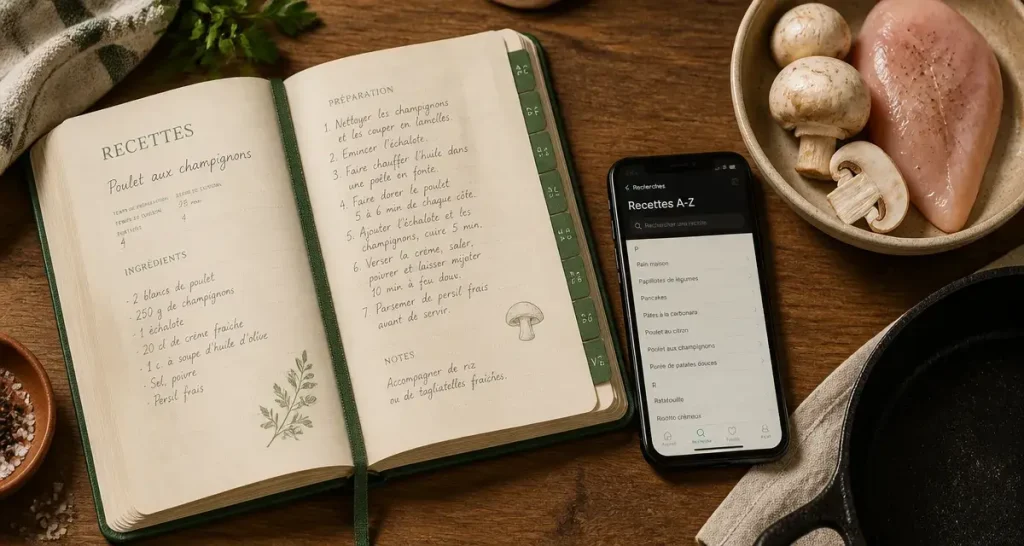 RECETTES
Poulet aux champignons
TEMPS DE PRÉPARATION
4
INGRÉDIENTS
- 2 blancs de poulet
- 250 g de champignons
- 1 échalote
- 20 cl de crème fraîche
- 1 c. à soupe d'huile d'olive
- Sel, poivre
- Persil frais
PRÉPARATION
1. Nettoyer les champignons
et les couper en lamelles.
2. Émincer l'échalote.
3. Faire chauffer l'huile dans
une poêle en fonte.
4. Faire dorer le poulet
5 à 6 min de chaque côté.
5. Ajouter l'échalote et les
champignons, cuire 5 min.
6. Verser la crème, saler,
poivrer et laisser mijoter
10 min à feu doux.
7 Parsemer de persil frais
avant de servir.
NOTES
Accompagner de riz
ou de tagliatelles fraîches.
Recherches
Recettes A-Z
Rechercher une recette
P
Pain maison
Papillotes de légumes
Pancakes
Pâtes à la carbonara
Poulet au citron
Poulet aux champignons
Purée de patates douces
R
Ratatouille
Risotto crémeux